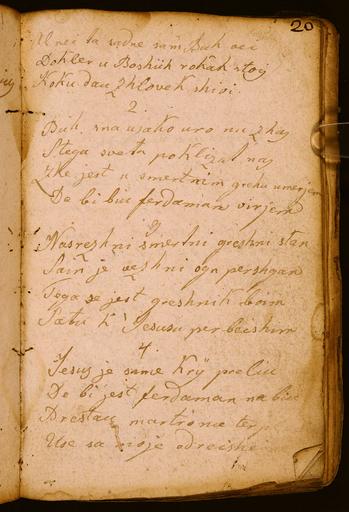 20
U nei ta sodne sam Buh vei
Dokler u Boshiih rokah stoy
Koku dau zhlovek shivi.
2.
Buh, ena usako uro nu zhas
Is tega sveta poklizal nas
Zhe jest u smertnim grehu umerjem
De bi biu ferdaman virjem
3
Nasreshni smertni greshni stan
Sain je veshni ogn pershgan
Tega se jest greshnik boim
Satu k' Jesusu perbeishim
4.
Jesus je sume Kry preliu
De bi jest ferdaman na biu
Brestau martrome
Use sa moje